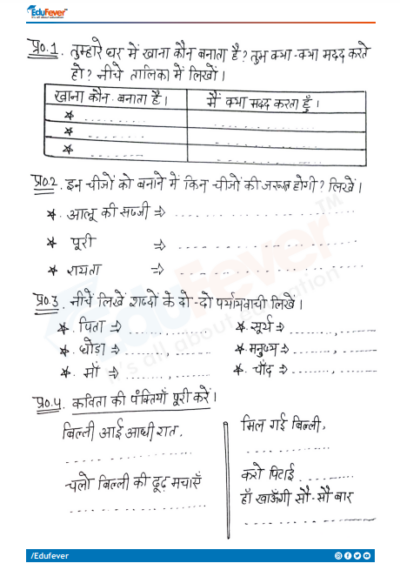 EduFever
प्र०.1. तुम्हारे घर में खाना कौन बनाता है? तुम क्या-क्या मदद करते
हो? नीचे तालिका में लिखों।
खाना कौन बनाता है।
मैं क्या मदद करता हूँ।
प्र०2. इन चीजों को बनाने में किन चीजों की जरूरत होगी? लिखें।
* आलू की सब्जी ⇒
* पूरी ⇒
* रायता ⇒
प्र०.3. नीचें लिखें शब्दो के दो-दो पर्यायवाची लिखें।
* पिता ⇒ ,
* सूर्य ⇒ ,
* घोडा ⇒ ,
* मनुष्य ⇒ ,
* माँ ⇒ ,
* चाँद ⇒ ,
प्र०.4. कविता की पंक्तियाँ पूरी करें।
बिल्ली आई आधी रात,
चलो बिल्ली की ढूढ़ मचाएँ
मिल गई बिल्ली,
करो पिटाई
हाँ खाऊँगी सौ-सौ बार
EduFever
It's all about education
TM
/Edufever